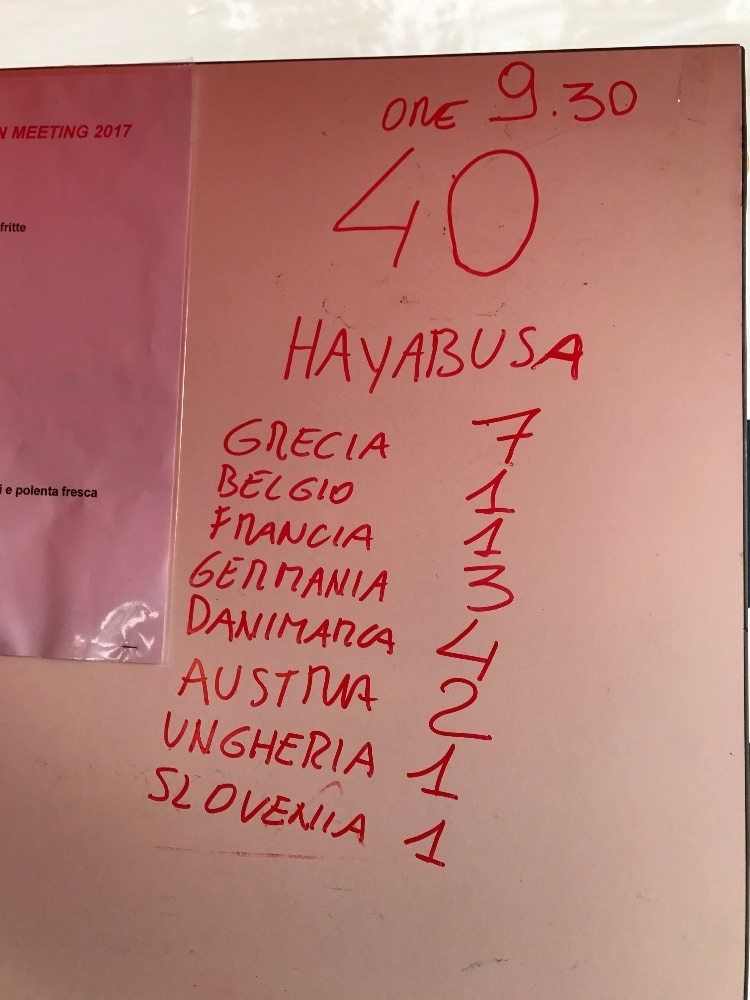 N MEETING 2017
fritte
i e polenta fresca
ORE 9.30
40
HAYABUSA
GRECIA 7
BELGIO 1
FRANCIA 1
GERMANIA 3
DANIMARCA 4
AUSTRIA 2
UNGHERIA 1
SLOVENIA 1